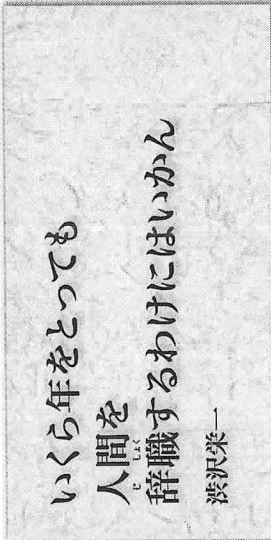 いくら年をとっても
人間を
辞職するわけにはいかん
じしょく
渋沢栄一